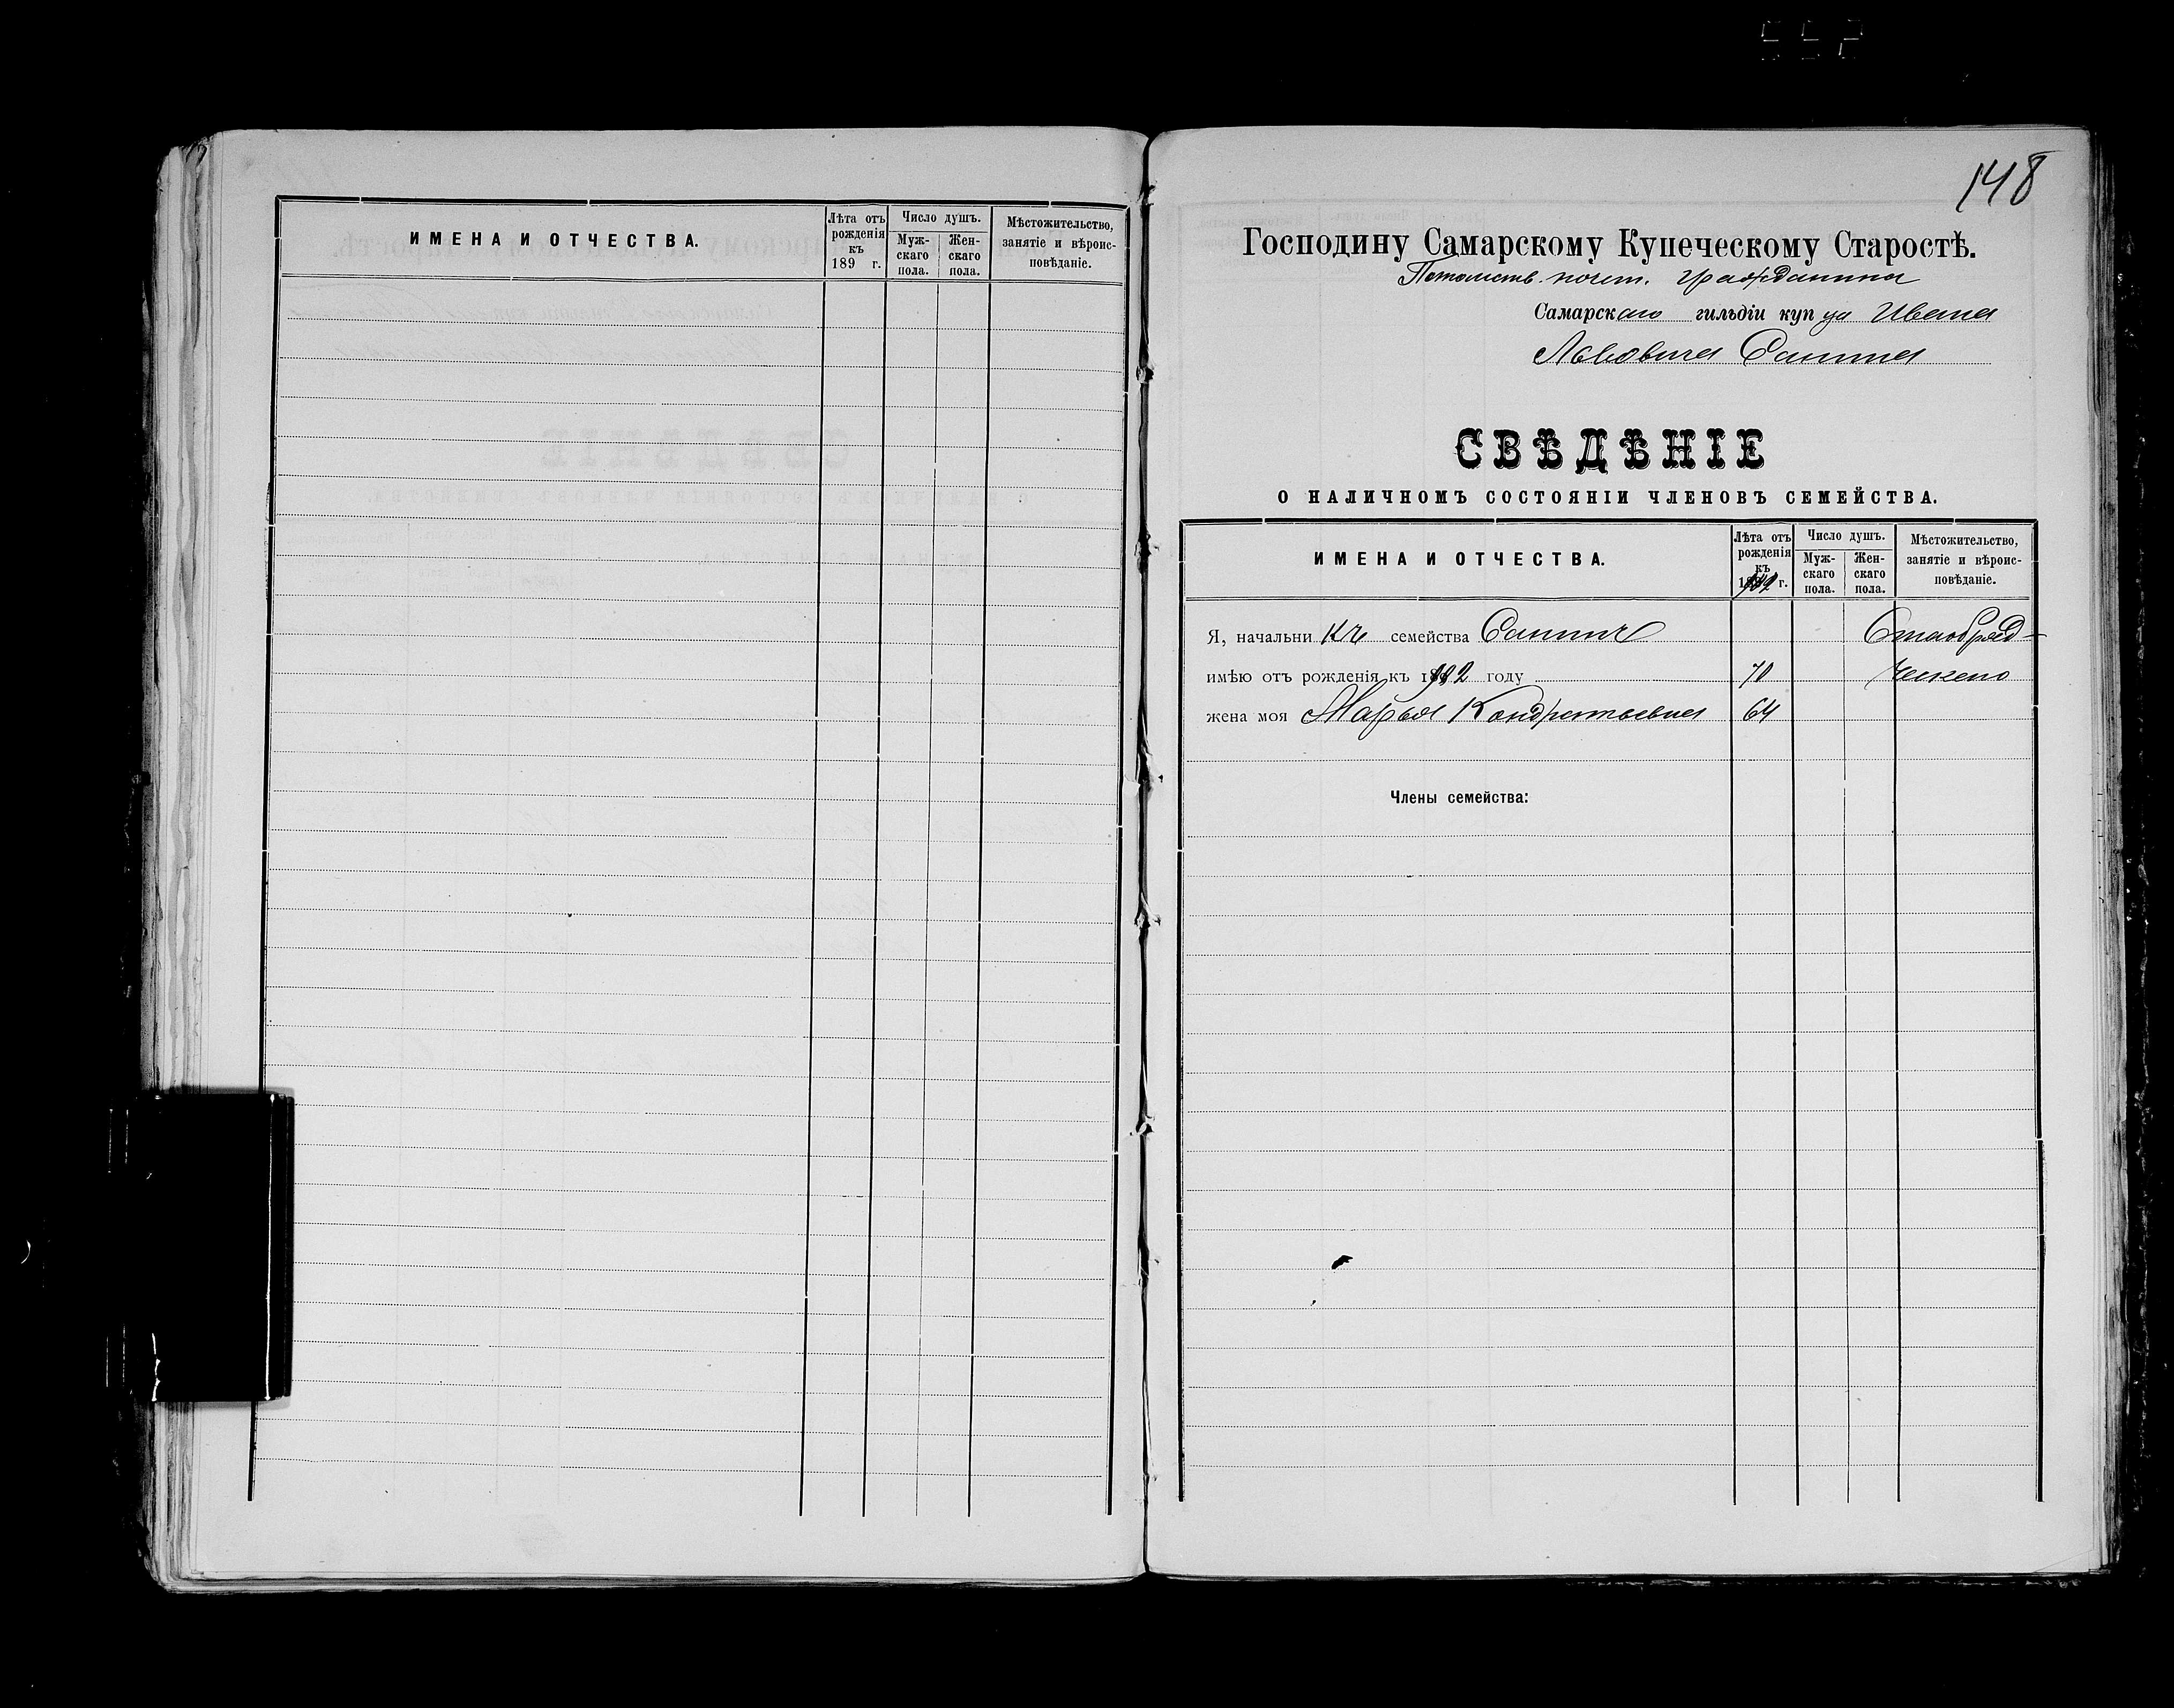 552
ИМЕНА И ОТЧЕСТВА.
Лѣта отъ рожденія къ 189 г.
Число душъ.
Муж-скаго пола.
Жен-скаго пола.
Мѣстожительство, занятіе и вѣроис-повѣданіе.
148
Господину Самарскому Купеческому Старостѣ.
Потомств. почет. гражданина
Самарскаго гильдіи купца Ивана
Львовича Санина
СВѢДѢНІЕ
О НАЛИЧНОМЪ СОСТОЯНІИ ЧЛЕНОВЪ СЕМЕЙСТВА.
ИМЕНА И ОТЧЕСТВА.
Лѣта отъ рожденія къ 1902 г.
Число душъ.
Муж-скаго пола.
Жен-скаго пола.
Мѣстожительство, занятіе и вѣроис-повѣданіе.
Я, начальникъ семейства Санинъ
имѣю отъ рожденія къ 1902 году 70
жена моя Марья Кондратьевна 64
Члены семейства: